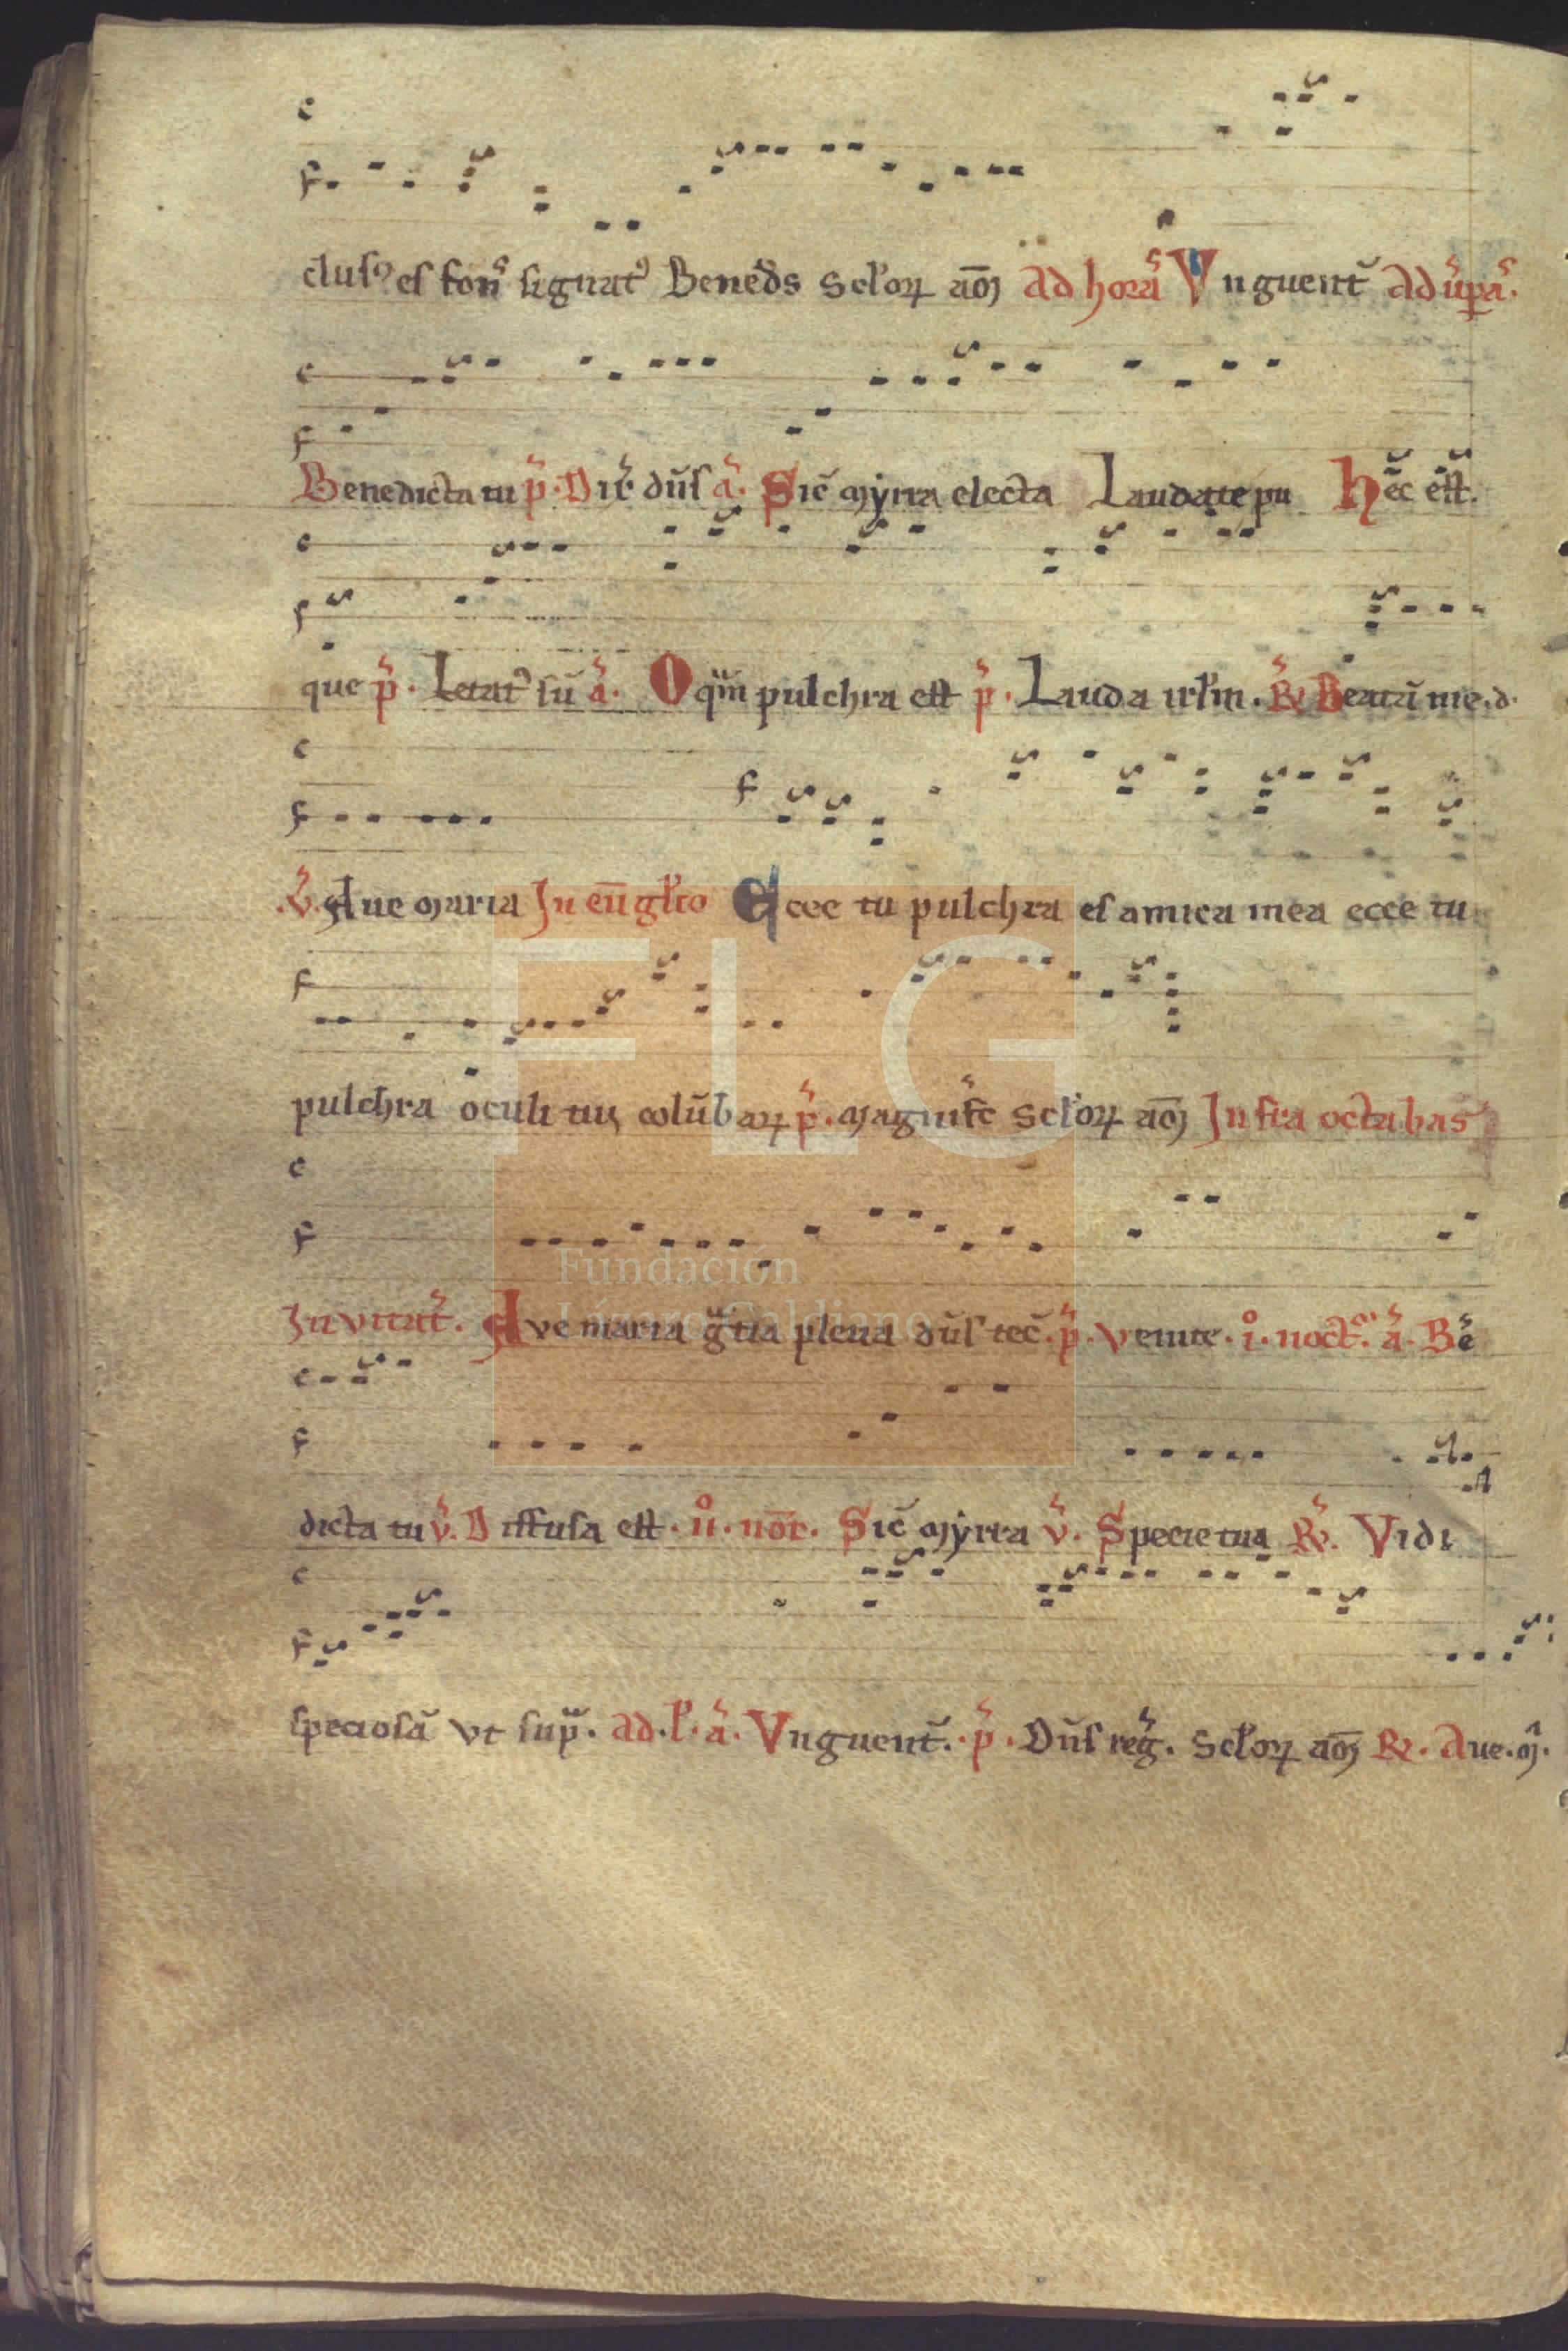 clusꝰ es fons signatꝰ Beneđs sclorꝝ am̄ Ad horā Vnguent̄ Ad ūpā.
Benedicta tu p̄. Dix̄ dn̄s ā. Sic̄ myrra electa Laudate pu hec̄ est̄.
que p̄. Letatꝰ sū ā. O qm̄ pulchra est p̄. Lauda irlm̄. R̄ Beatā me. d.
.v̄. Ave maria In eūgl̄io Ecce tu pulchra es amica mea ecce tu
pulchra oculi tui colūbarꝝ p̄. magnif̄c sclorꝝ am̄ Infra octabas
Invitat̄. Ave maria gr̄tia plena dn̄s tec̄. p̄. venite. i. noct̄. ā. Be
dicta tu v̄. Diffusa est. ii. noc̄. Sic̄ myrra v̄. Specie tua R̄. Vidi
speciosā vt sup̄. ad. l̄. ā. Vnguent̄. p̄. Dn̄s reḡ. sclorꝝ am̄ R̄. Ave. m̄.
Fundación
Lázaro Galdiano
FLG